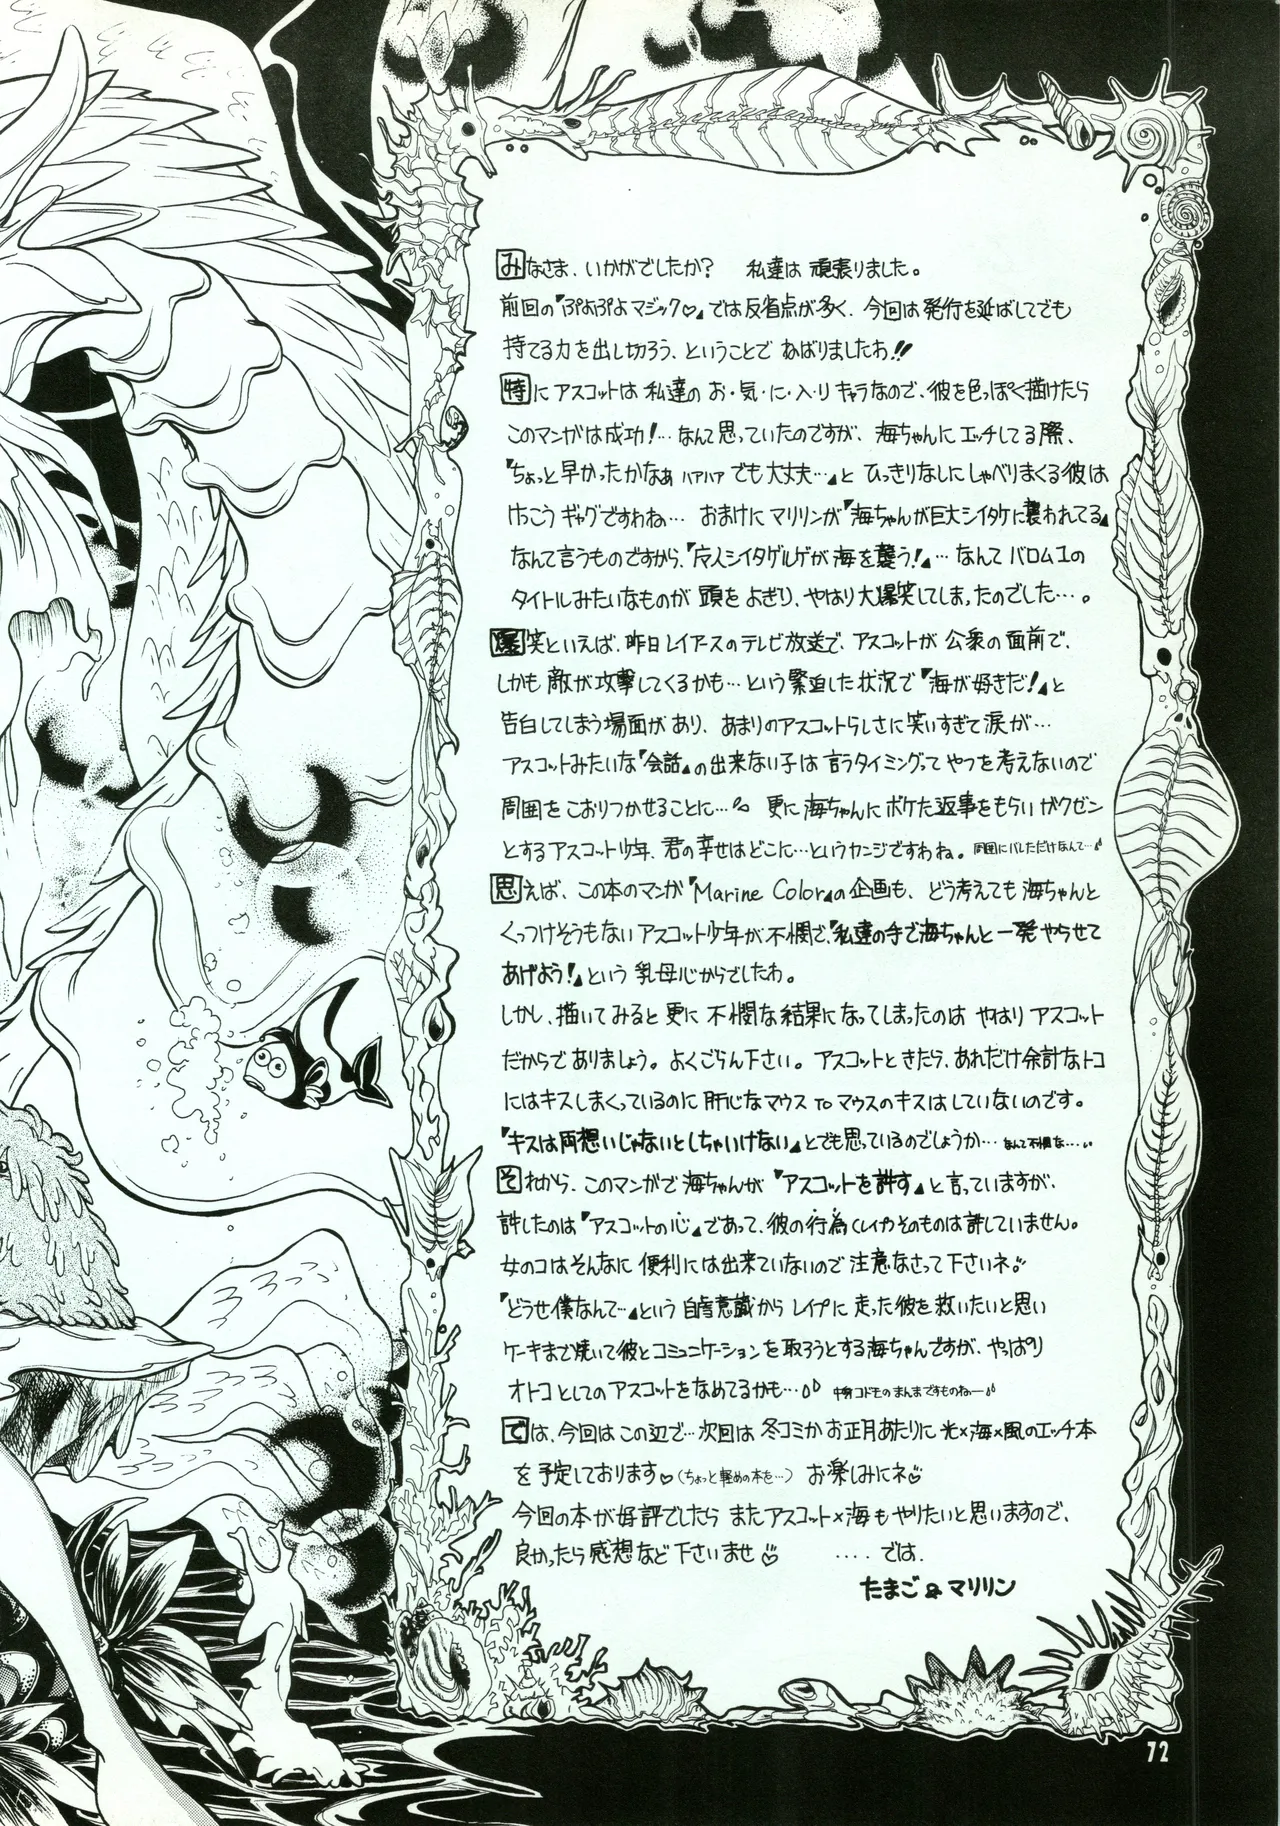 みなさま、いかがでしたか？ 私達は 頑張りました。
前回の『ぷよぷよマジック♡』では反省点が多く、今回は発行を延ばしてでも
持てる力を出し切ろう、ということで ねばりましたわ!!
特にアスコットは 私達の お・気・に・入・り キャラなので、彼を色っぽく描けたら
このマンガは成功！…なんて思っていたのですが、海ちゃんにエッチしてる際、
『ちょっと早かったかなぁ ハアハア でも大丈夫…』と ひっきりなしにしゃべりまくる彼は
けっこう ギャグですわね… おまけに マリリンが『海ちゃんが巨大シイタケに襲われてる』
なんて言うものですから、『ドクター シイタゲルゲが 海を襲う！』…なんて バロムⅠの
タイトルみたいなものが 頭を よぎり、やはり大爆笑してしまったのでした…。
爆笑といえば、昨日レイアースのテレビ放送で、アスコットが 公衆の面前で、
しかも 敵が攻撃してくるかも…という緊迫した状況で『海が好きだ！』と
告白してしまう場面があり、あまりのアスコットらしさに笑いすぎて涙が…
アスコットみたいな『会話』の出来ない子は 言うタイミングってやつを考えないので
周囲を こおりつかせることに… 更に海ちゃんにボケた返事をもらいガクゼン
とするアスコット少年、君の幸せはどこに…というカンジですわね。周囲にバレただけなんて…
思えば、この本のマンガ『Marine Color』の企画も、どう考えても海ちゃんと
くっつけそうもないアスコット少年が不憫で、『私達の手で海ちゃんと一発やらせて
あげよう！』という 乳母心からでしたわ。
しかし、描いてみると更に不憫な結果になってしまったのは やはり アスコット
だからでありましょう。よくごらん下さい。アスコットときたら、あれだけ余計なトコ
にはキスしまくっているのに肝心なマウス TO マウスのキスはしていないのです。
『キスは両想いじゃないとしちゃいけない』とでも思っているのでしょうか…なんて不憫な…
それから、このマンガで海ちゃんが『アスコットを許す』と言っていますが、
許したのは『アスコットの心』であって、彼の行為（レイプ）そのものは許していません。
女のコはそんなに 便利には出来ていないので 注意なさって下さいネ。
『どうせ僕なんて…』という 自虐意識から レイプに 走った彼を救いたいと思い
ケーキまで焼いて彼とコミュニケーションを取ろうとする海ちゃんですが、やっぱり
オトコとしてのアスコットをなめてるかも… 中身コドモのまんまですものねー
では、今回はこの辺で…次回は 冬コミか お正月あたりに 光×海×風のエッチ本
を予定しております♡（ちょっと軽めの本を…） お楽しみにネ♡
今回の本が好評でしたら またアスコット×海も やりたいと思いますので、
良かったら感想など下さいませ♡ ‥‥では.
たまご & マリリン
72